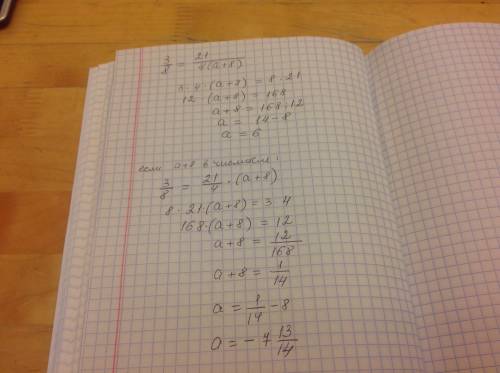 3/8 = 21/4(a+8)
3 · 4 · (a+8) = 8 · 21
12 · (a+8) = 168
a+8 = 168 : 12
a = 14 - 8
a = 6
если a+8 в числителе:
3/8 = 21/4 · (a+8)
8 · 21 · (a+8) = 3 · 4
168 · (a+8) = 12
a+8 = 12/168
a+8 = 1/14
a = 1/14 - 8
a = - 7 13/14